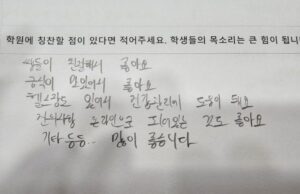 학원에 칭찬할 점이 있다면 적어주세요. 학생들의 목소리는 큰 힘이 됩니
쌤들이 친절해서 좋아요
급식이 맛있어서 좋아요
헬스장도 있어서 건강관리에 도움이 돼요
온라인으로 되어있는 것도 좋아요
기타 등등... 많이 좋습니다